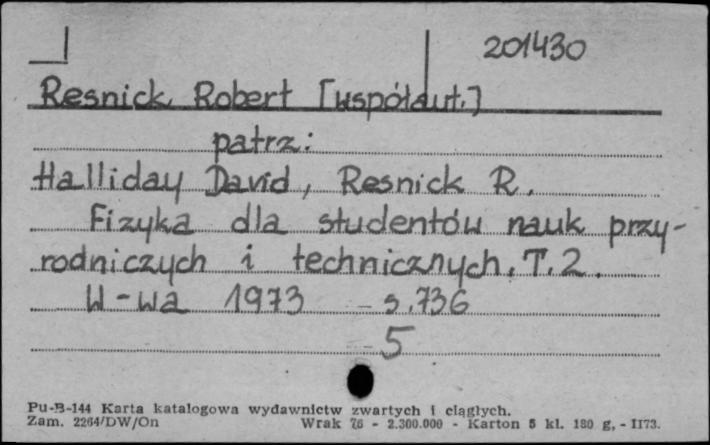 201430
Resnick Robert [współaut.]
patrz:
Halliday David, Resnick R.
Fizyka dla studentów nauk przy-
rodniczych i technicznych. T. 2.
W-wa 1973 s. 736
5
Pu-B-144 Karta katalogowa wydawnictw zwartych i ciągłych.
Zam. 2264/DW/On Wrak 76 - 2.300.000 - Karton 5 kl. 180 g, - II73.